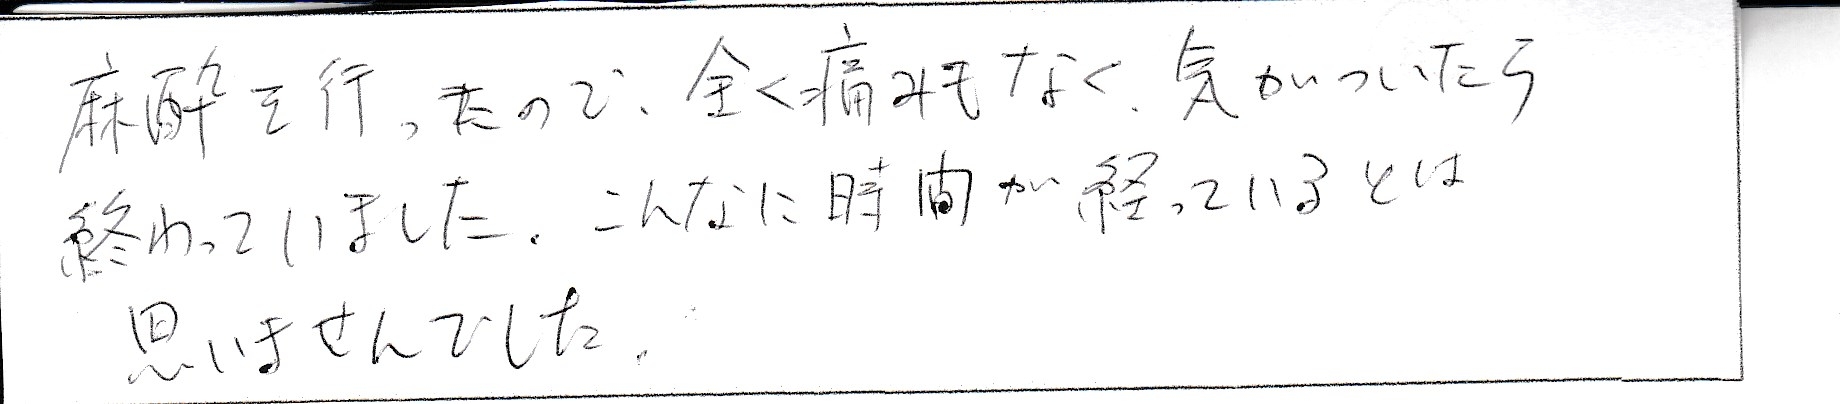 麻酔を行ったので、全く痛みもなく、気がついたら
終わっていました。こんなに時間が経っているとは
思いませんでした。